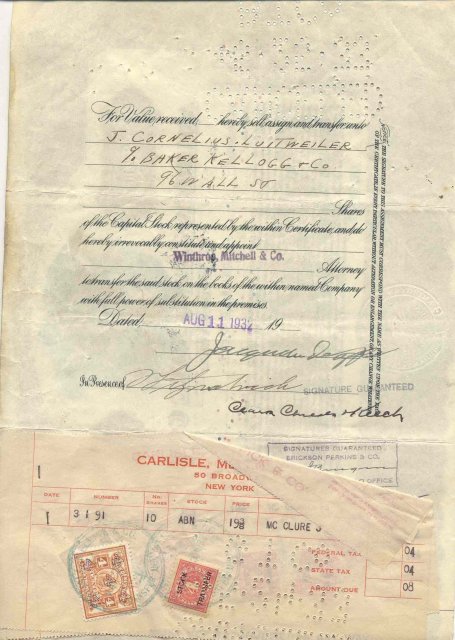 For Value received hereby sell, assign and transfer unto
J. CORNELIUS LUITWEILER
% BAKER KELLOGG & CO
96 WALL ST
Shares
of the Capital Stock represented by the within Certificate, and do
hereby irrevocably constitute and appoint
Winthrop, Mitchell & Co.
Attorney
to transfer the said stock on the books of the within named Company
with full power of substitution in the premises.
Dated AUG 11 1932 19
In Presence of
SIGNATURE GUARANTEED
NOTICE: THE SIGNATURE TO THIS ASSIGNMENT MUST CORRESPOND WITH THE NAME AS WRITTEN UPON THE FACE OF THE CERTIFICATE IN EVERY PARTICULAR WITHOUT ALTERATION OR ENLARGEMENT OR ANY CHANGE WHATEVER
SIGNATURES GUARANTEED
ERICKSON PERKINS & CO.
OFFICE
CARLISLE, M
50 BROADW
NEW YORK
CK & CO
DATE NUMBER NO. SHARES STOCK PRICE
3191 10 ABN MC CLURE J
FEDERAL TAX 04
STATE TAX 04
AMOUNT DUE 08
STOCK
TRANSFER